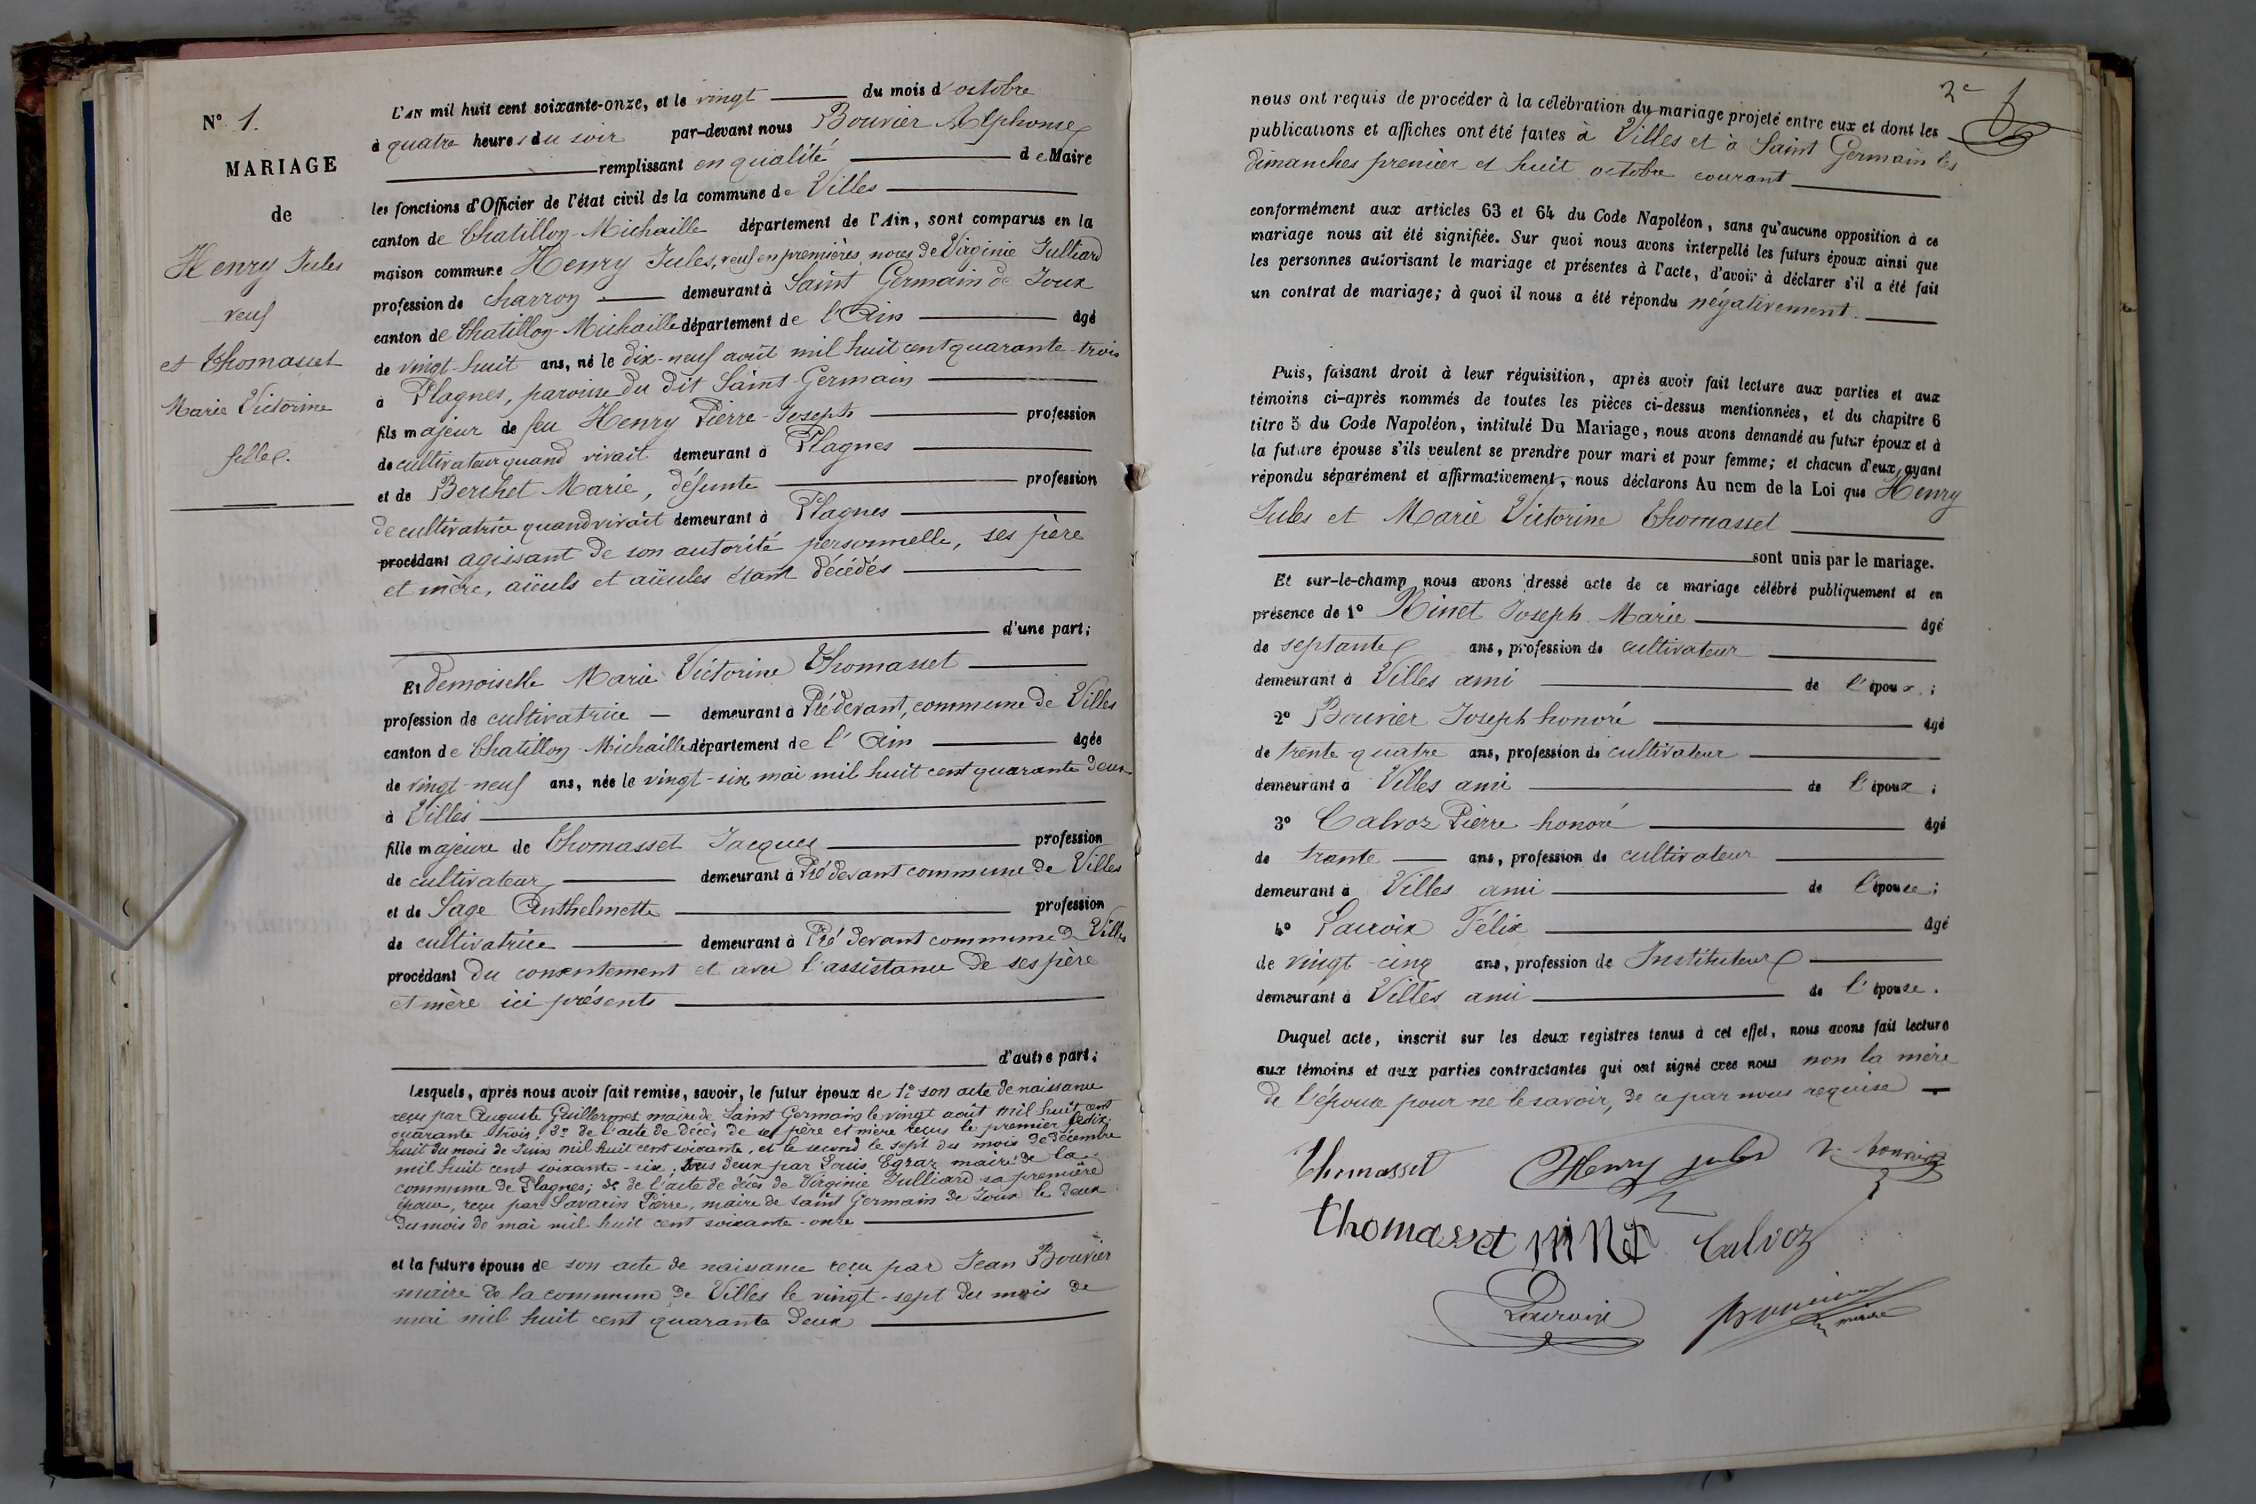 N° 1.
MARIAGE
de
Henry Jules
veuf
et Thomasset
Marie Victorine
fille.
L'AN mil huit cent soixante-onze, et le vingt du mois d'octobre
à quatre heures du soir par-devant nous Bouvier Alphonse
remplissant en qualité de Maire
les fonctions d'Officier de l'état civil de la commune de Villes
canton de Chatillon-Michaille département de l'Ain, sont comparus en la
maison commune Henry Jules, veuf en premières noces de Virginie Julliard
profession de charron demeurant à Saint Germain de Joux
canton de Chatillon-Michaille département de l'Ain âgé
de vingt-huit ans, né le dix-neuf août mil huit cent quarante-trois
à Plagnes, paroisse du dit Saint-Germain
fils majeur de feu Henry Pierre-Joseph profession
de cultivateur quand vivait demeurant à Plagnes
et de Berchet Marie, défunte profession
de cultivatrice quand vivait demeurant à Plagnes
procédant agissant de son autorité personnelle, ses père
et mère, aïeuls et aïeules étant décédés
d'une part;
Et demoiselle Marie Victorine Thomasset
profession de cultivatrice demeurant à Pré devant, commune de Villes
canton de Chatillon-Michaille département de l'Ain âgée
de vingt-neuf ans, née le vingt-six mai mil huit cent quarante deux
à Villes
fille majeure de Thomasset Jacques profession
de cultivateur demeurant à Pré devant commune de Villes
et de Sage Anthelmette profession
de cultivatrice demeurant à Pré devant commune de Villes
procédant du consentement et avec l'assistance de ses père
et mère ici présents
d'autre part;
Lesquels, après nous avoir fait remise, savoir, le futur époux de 1° son acte de naissance
reçu par Auguste Guillermet maire de Saint Germain le vingt août mil huit cent
quarante trois; 2° de l'acte de décès de ses père et mère reçus le premier le dix-
huit du mois de Juin mil huit cent soixante, et le second le sept du mois de décembre
mil huit cent soixante-six, tous deux par Louis Egraz maire de la
commune de Plagnes; 3° de l'acte de décès de Virginie Julliard sa première
épouse, reçu par Savarin Pierre, maire de Saint Germain de Joux le deux
du mois de mai mil huit cent soixante-onze
et la future épouse de son acte de naissance reçu par Jean Bouvier
maire de la commune de Villes le vingt-sept du mois de
mai mil huit cent quarante deux
2e
nous ont requis de procéder à la célébration du mariage projeté entre eux et dont les
publications et affiches ont été faites à Villes et à Saint Germain les
dimanches premier et huit octobre courant
conformément aux articles 63 et 64 du Code Napoléon, sans qu'aucune opposition à ce
mariage nous ait été signifiée. Sur quoi nous avons interpellé les futurs époux ainsi que
les personnes autorisant le mariage et présentes à l'acte, d'avoir à déclarer s'il a été fait
un contrat de mariage; à quoi il nous a été répondu négativement.
Puis, faisant droit à leur réquisition, après avoir fait lecture aux parties et aux
témoins ci-après nommés de toutes les pièces ci-dessus mentionnées, et du chapitre 6
titre 5 du Code Napoléon, intitulé Du Mariage, nous avons demandé au futur époux et à
la future épouse s'ils veulent se prendre pour mari et pour femme; et chacun d'eux ayant
répondu séparément et affirmativement, nous déclarons Au nom de la Loi que Henry
Jules et Marie Victorine Thomasset
sont unis par le mariage.
Et sur-le-champ nous avons dressé acte de ce mariage célébré publiquement et en
présence de 1° Ninet Joseph Marie âgé
de septante ans, profession de cultivateur
demeurant à Villes ami de l'époux;
2° Bouvier Joseph honoré âgé
de trente quatre ans, profession de cultivateur
demeurant à Villes ami de l'époux;
3° Calvoz Pierre honoré âgé
de trante ans, profession de cultivateur
demeurant à Villes ami de l'épouse;
4° Lacroix Félix âgé
de vingt-cinq ans, profession de Instituteur
demeurant à Villes ami de l'épouse.
Duquel acte, inscrit sur les deux registres tenus à cet effet, nous avons fait lecture
aux témoins et aux parties contractantes qui ont signé avec nous non la mère
de l'épouse pour ne le savoir, de ce par nous requise
Thomasset Henry jules Bouvier
thomasset Calvoz
Lacroix Bouvier
maire